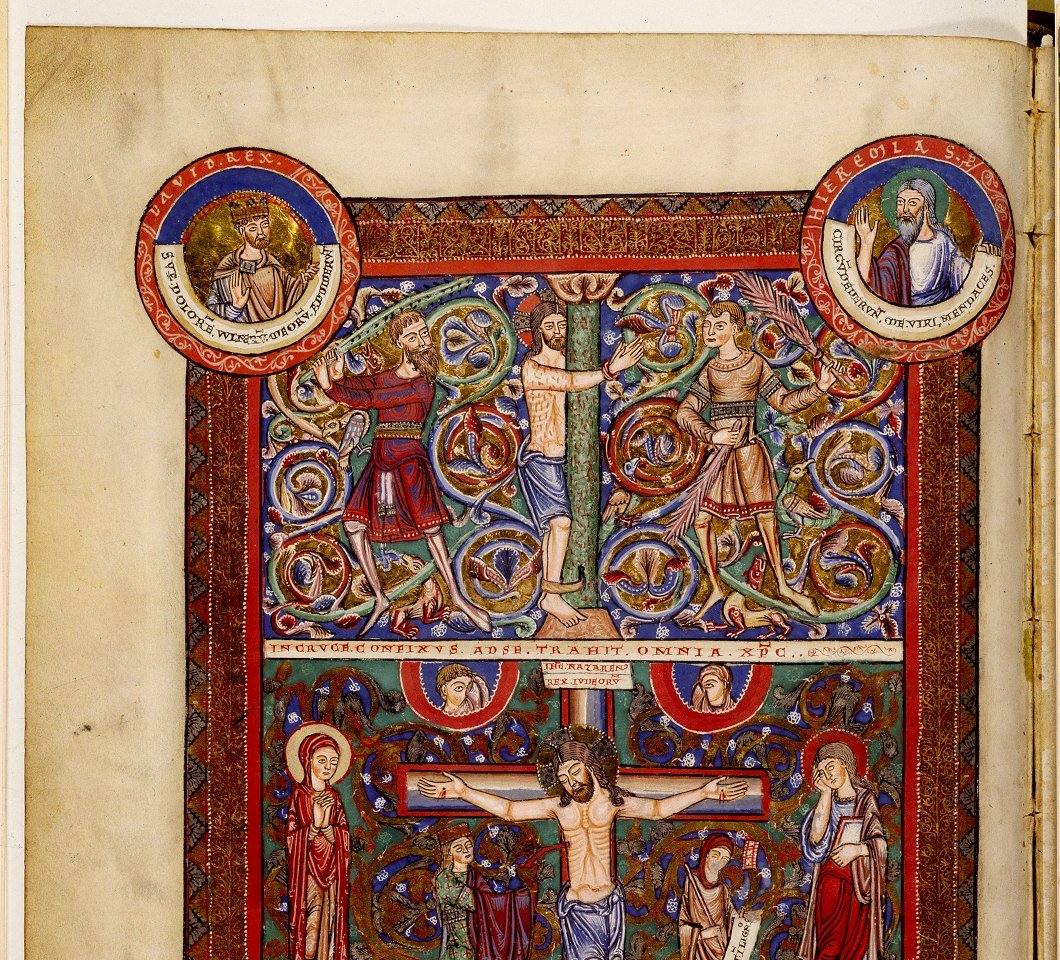 DAVID. REX.
SVP. DOLORĒ. WLNERV̄. MEORV̄. ADDIDERVN̄T
HIEREMIAS. P.
CIRCV̄DEDERVN̄. ME. VIRI. MENDACES.
IN CRVCE. CONFIXVS. AD SE. TRAHIT. OMNIA. XP̄C..
IHC. NAZAREN
REX. IVDEORV̄